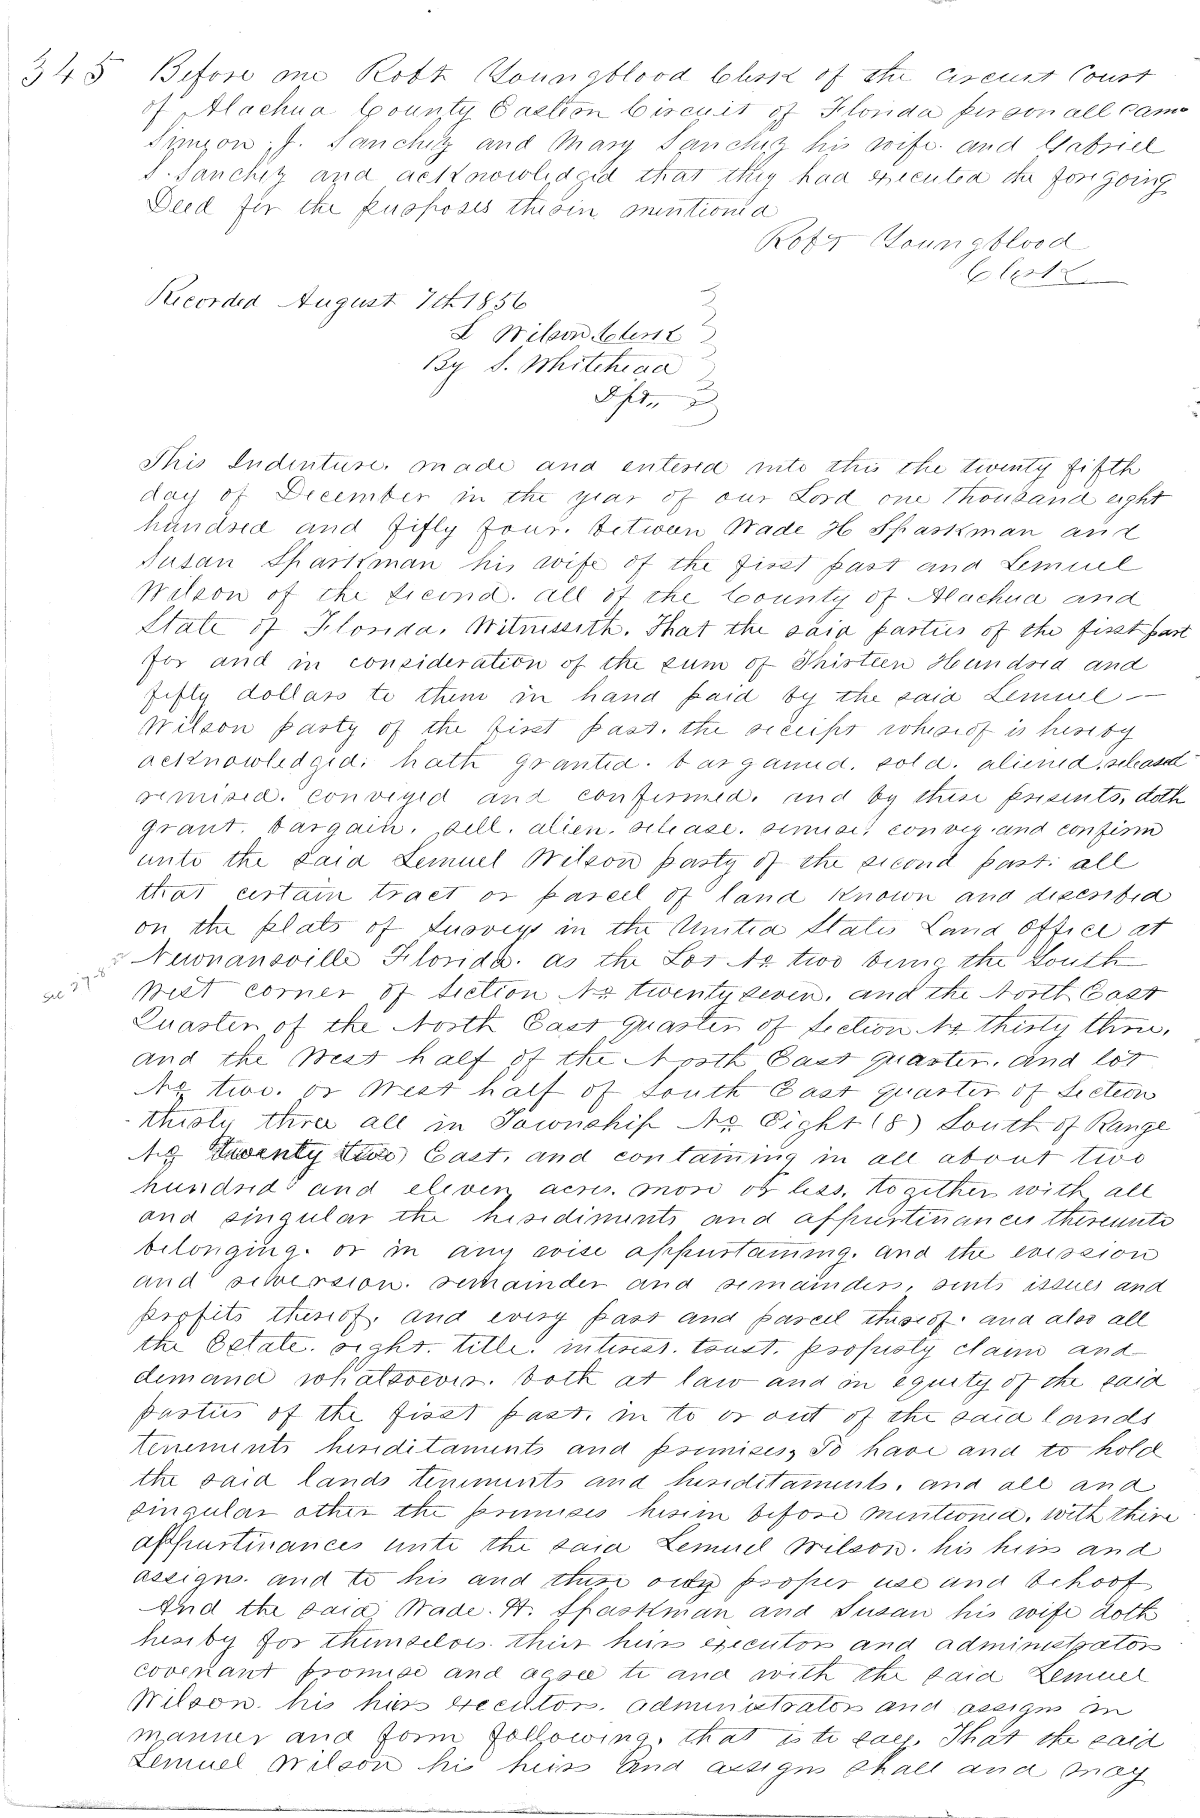 345 Before me Robt Youngblood Clerk of the Circuit Court
of Alachua County Eastern Circuit of Florida personall came
Simeon J. Sanchez and Mary Sanchez his wife. and Gabriel
S. Sanchez and acknowledged that they had executed the foregoing
Deed for the purposes therein mentioned
Robt Youngblood
Clerk
Recorded August 7th 1856
L Wilson Clerk
By S. Whitehead
Dpt.,
This Indenture. made and entered into this the twenty fifth
day of December in the year of our Lord one Thousand eight
hundred and fifty four. between Wade H Sparkman and
Susan Sparkman his wife of the first part and Lemuel
Wilson of the second. all of the County of Alachua and
State of Florida. Witnesseth. That the said parties of the first part
for and in consideration of the sum of Thirteen Hundred and
fifty dollars to them in hand paid by the said Lemuel
Wilson party of the first part. the receipt whereof is hereby
acknowledged. hath granted. bargained. sold. aliened. released
remised. conveyed and confirmed. and by these presents, doth
grant. bargain. sell. alien. release. remise. convey. and confirm
unto the said Lemuel Wilson party of the second part. all
that certain tract or parcel of land known and described
on the plats of Surveys in the United States Land Office at
Newnansville Florida. as the Lot No two being the South
West corner of Section No twenty seven. and the North East
Quarter of the North East quarter of Section No thirty three.
and the West half of the North East quarter. and lot
No two. or West half of South East quarter of Section
thirty three all in Township No Eight (8) South of Range
No twenty two East. and containing in all about two
hundred and eleven acres. more or less. together with all
and singular the heridiments and appurtinances thereunto
belonging. or in any wise appurtaining. and the
and reversion. remainder and remainders, rents issues and
profits thereof. and every part and parcel thereof. and also all
the Estate. right. title. interest. trust. property claim and
demand whatsoever. both at law and in equity of the said
parties of the first part. in to or out of the said lands
tenements heriditaments and premises, To have and to hold
the said lands tenements and heriditaments. and all and
singular other the premises herein before mentioned. with their
appurtinances unto the said Lemuel Wilson. his heirs and
assigns. and to his and their only proper use and behoof
And the said Wade. H. Sparkman and Susan his wife doth
hereby for themselves. their heirs executors and administrators
covenant promise and agree to and with the said Lemuel
Wilson. his heirs executors. administrators and assigns in
manner and form following. that is to say. That the said
Lemuel Wilson his heirs and assigns shall and may